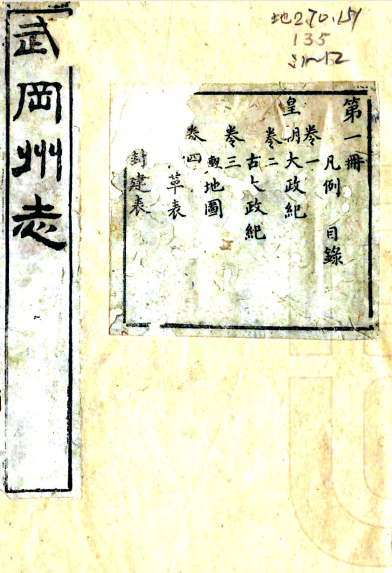 武岡州志
地270.151
135
:1~12
第一冊
凡例 目錄
卷一
皇明大政紀
卷二
古大政紀
卷三
輿地圖
卷四
革表
封建表